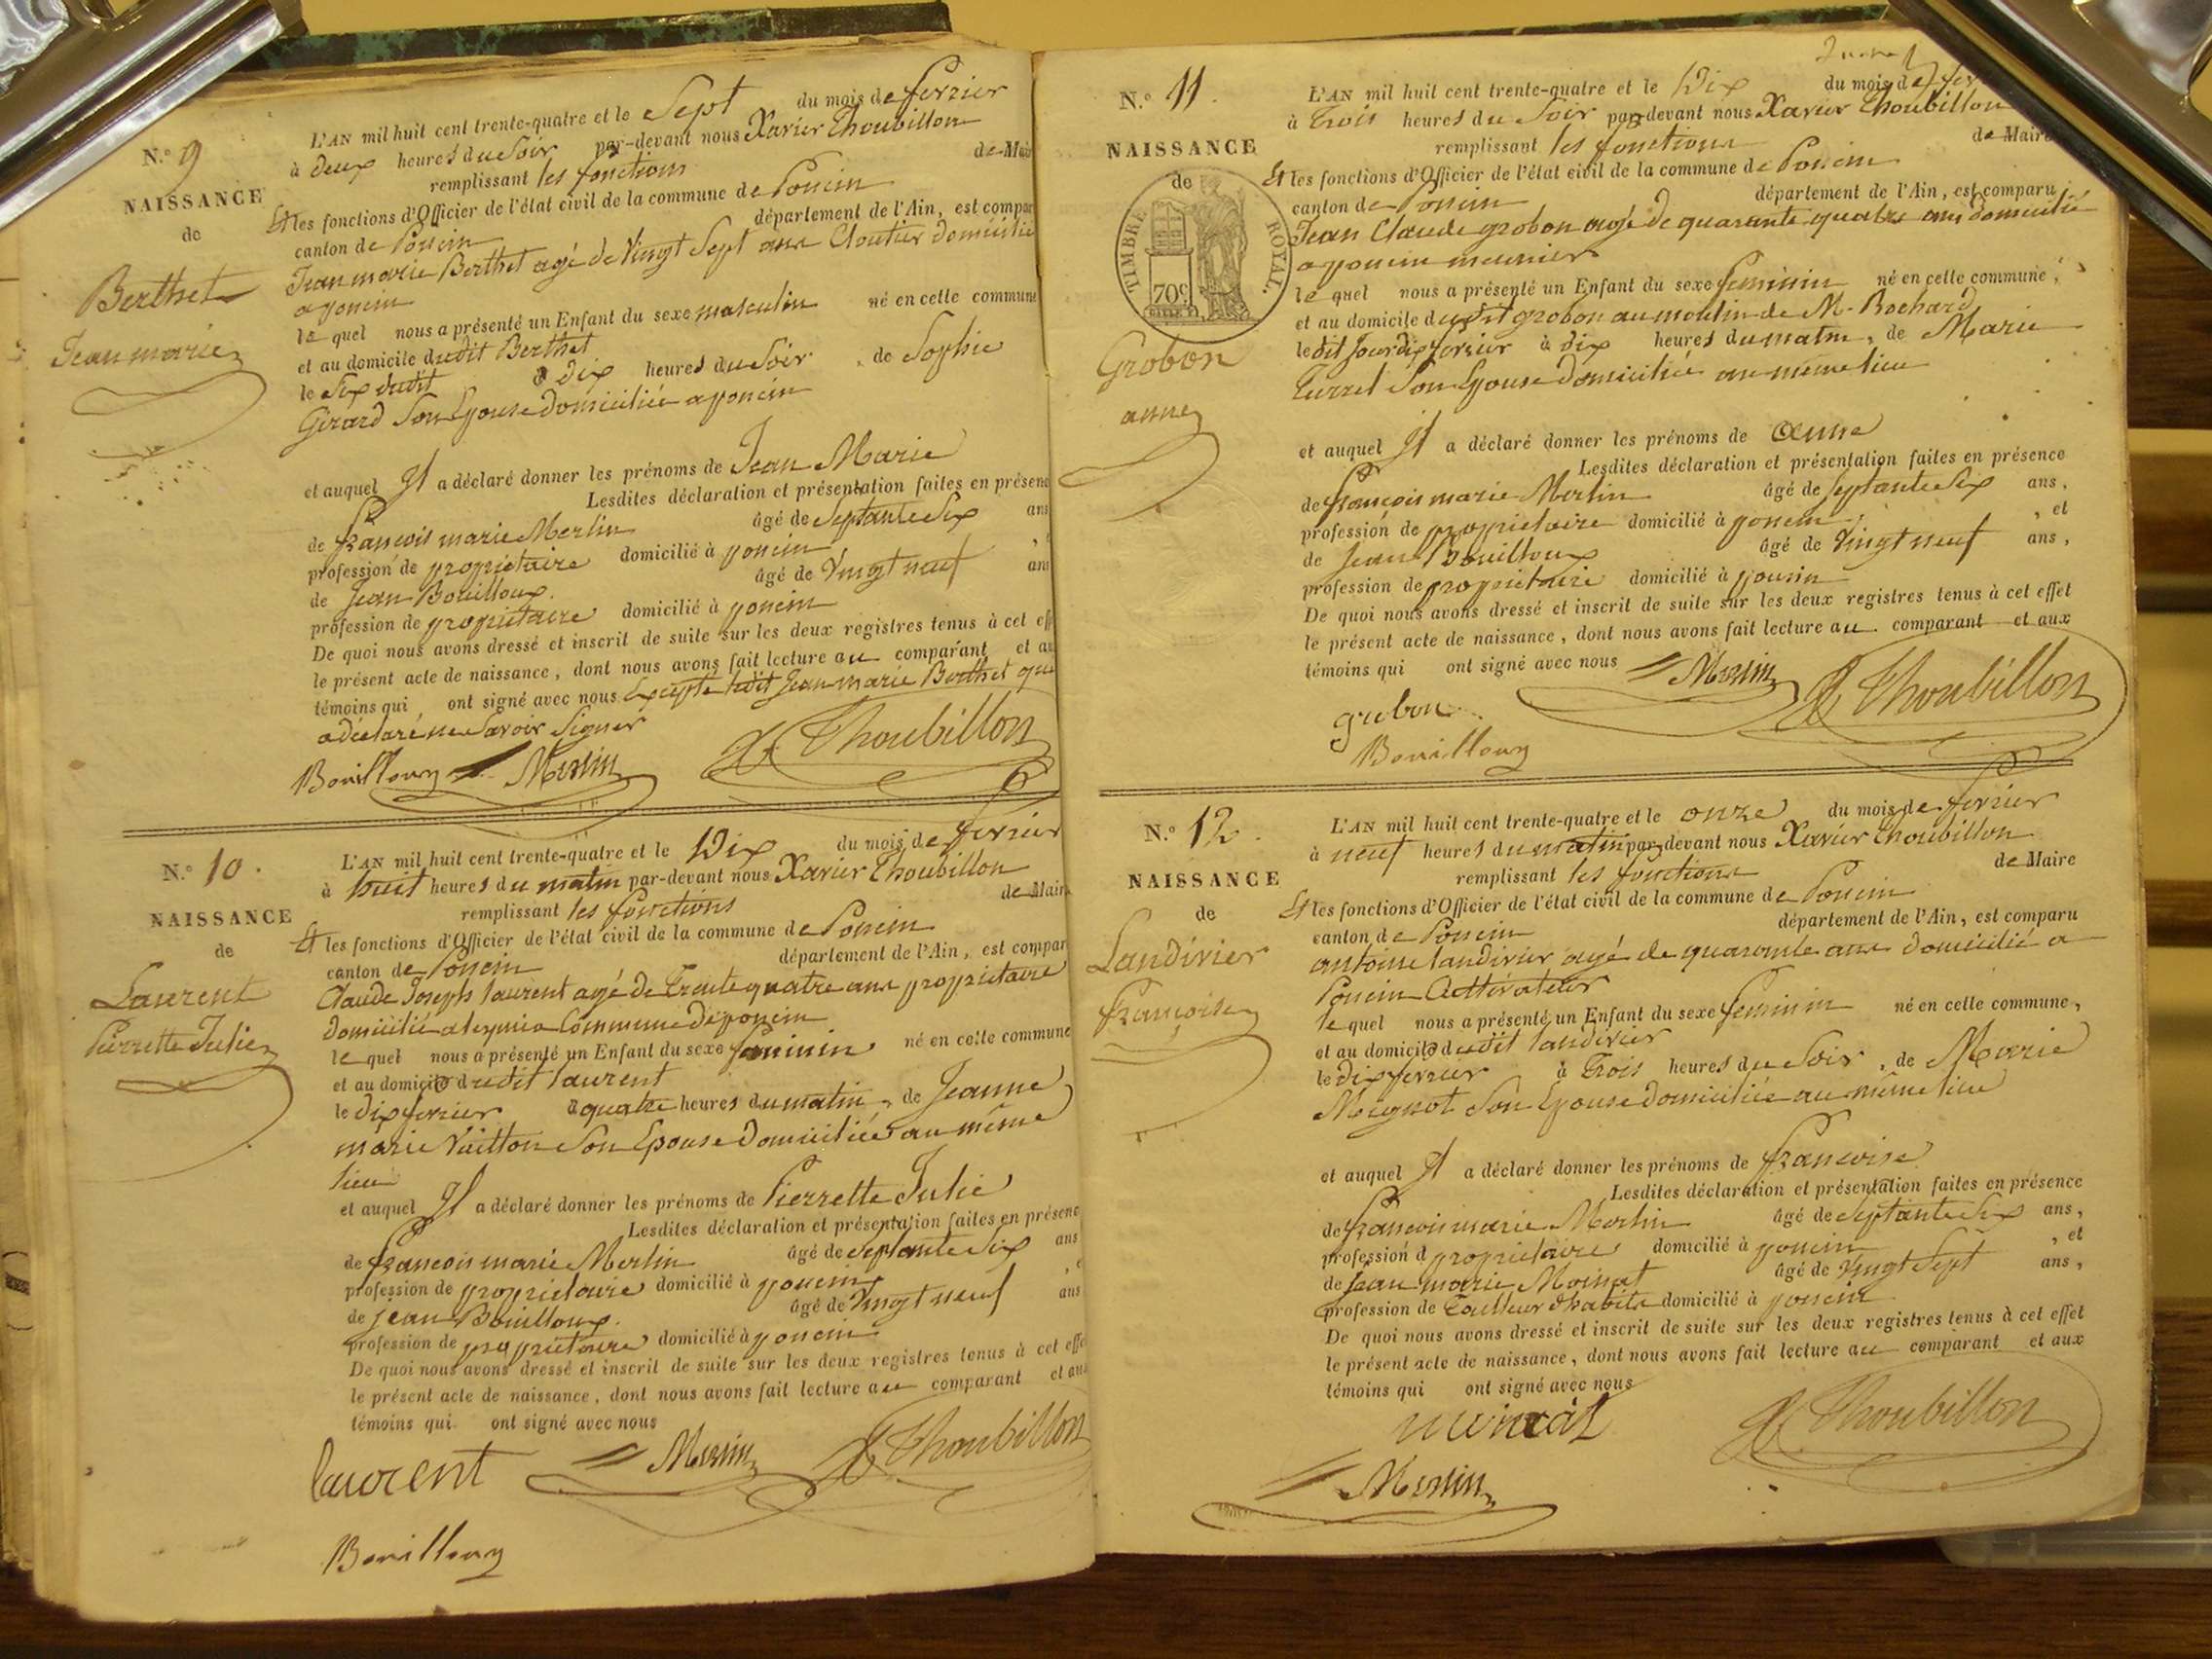 N.º 9
NAISSANCE
de
Berthet
Jean marie
L'AN mil huit cent trente-quatre et le Sept du mois de fevrier
à deux heures du Soir par-devant nous Xavier Thoubillon
remplissant les fonctions de Mair
Et les fonctions d'Officier de l'état civil de la commune de Poncin
canton de Poncin département de l'Ain, est compar
Jean marie Berthet agé de Vingt Sept ans Cloutier domicilié
a poncin
le quel nous a présenté un Enfant du sexe masculin né en cette commune
et au domicile dudit Berthet
le Six dudit à dix heures du Soir, de Sophie
Girard Son Epouse domiciliée a poncin
et auquel Il a déclaré donner les prénoms de Jean Marie
Lesdites déclaration et présentation faites en présenc
de francois marie Merlin âgé de Septante Six ans
profession de propriétaire domicilié à poncin
de Jean Bouilloux âgé de Vingt neuf ans
profession de propriétaire domicilié à poncin
De quoi nous avons dressé et inscrit de suite sur les deux registres tenus à cet eff
le présent acte de naissance, dont nous avons fait lecture au comparant et au
témoins qui ont signé avec nous Excepté ledit Jean marie Berthet que
a déclaré ne Savoir Signer
Bouilloux Merlin X Thoubillon
N.º 10.
NAISSANCE
de
Laurent
Pierrette Julie
L'AN mil huit cent trente-quatre et le Dix du mois de fevrier
à huit heures du matin par-devant nous Xavier Thoubillon
remplissant les fonctions de Maire
Et les fonctions d'Officier de l'état civil de la commune de Poncin
canton de Poncin département de l'Ain, est compar
Claude Joseph laurent agé de Trente quatre ans propriétaire
domicilié a Commune de poncin
le quel nous a présenté un Enfant du sexe feminin né en cette commune
et au domicile dudit laurent
le dix fevrier à quatre heures du matin, de Jeanne
marie Vuitton Son Epouse domiciliée au même
lieu
et auquel Il a déclaré donner les prénoms de Pierrette Julie
Lesdites déclaration et présentation faites en présenc
de francois marie Merlin âgé de Septante Six ans
profession de propriétaire domicilié à poncin
de jean Bouilloux âgé de Vingt neuf ans
profession de propriétaire domicilié à poncin
De quoi nous avons dressé et inscrit de suite sur les deux registres tenus à cet effe
le présent acte de naissance, dont nous avons fait lecture au comparant et aux
témoins qui ont signé avec nous
laurent Merlin X Thoubillon
Bouilloux
N.º 11.
NAISSANCE
de
TIMBRE ROYAL.
70c
Grobon
anne
L'AN mil huit cent trente-quatre et le Dix du mois de fev
à Trois heures du Soir par-devant nous Xavier Thoubillon
remplissant les fonctions de Maire
Et les fonctions d'Officier de l'état civil de la commune de Poncin
canton de Poncin département de l'Ain, est comparu
Jean Claude grobon agé de quarante quatre ans domicilié
a poncin meunier
le quel nous a présenté un Enfant du sexe feminin né en cette commune,
et au domicile dudit grobon au moulin de M. Bochard
ledit Jour dix fevrier à dix heures du matin, de Marie
Turrel Son Epouse domiciliée au même lieu
et auquel Il a déclaré donner les prénoms de anne
Lesdites déclaration et présentation faites en présence
de françois marie Merlin âgé de septante Six ans,
profession de propriétaire domicilié à poncin, et
de Jean Bouilloux âgé de Vingt neuf ans,
profession de propriétaire domicilié à poncin
De quoi nous avons dressé et inscrit de suite sur les deux registres tenus à cet effet
le présent acte de naissance, dont nous avons fait lecture au comparant et aux
témoins qui ont signé avec nous Merlin X Thoubillon
grobon
Bouilloux
N.º 12.
NAISSANCE
de
Landivier
françoise
L'AN mil huit cent trente-quatre et le onze du mois de fevrier
à neuf heures du matin par-devant nous Xavier Thoubillon
remplissant les fonctions de Maire
Et les fonctions d'Officier de l'état civil de la commune de Poncin
canton de Poncin département de l'Ain, est comparu
antoine landivier agé de quarante ans domicilié a
Poncin Cultivateur
le quel nous a présenté un Enfant du sexe feminin né en cette commune,
et au domicile dudit landivier
le dix fevrier à Trois heures du Soir, de Marie
Mugnot Son Epouse domiciliée au même lieu
et auquel Il a déclaré donner les prénoms de francoise
Lesdites déclaration et présentation faites en présence
de francois marie Merlin âgé de Septante Six ans,
profession d propriétaire domicilié à poncin, et
de Jean marie Moinat âgé de Vingt Sept ans,
profession de Tailleur d'habits domicilié à poncin
De quoi nous avons dressé et inscrit de suite sur les deux registres tenus à cet effet
le présent acte de naissance, dont nous avons fait lecture au comparant et aux
témoins qui ont signé avec nous
moinat X Thoubillon
Merlin